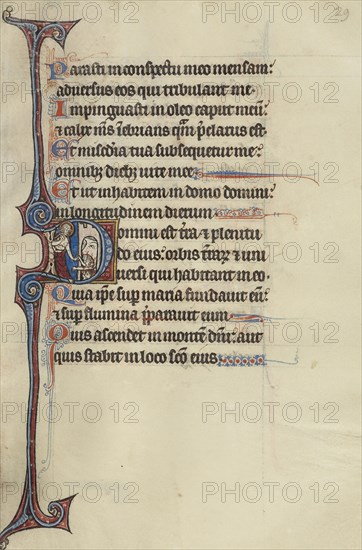 29
Parasti in conspectu meo mensam:
adversus eos qui tribulant me.
Impinguasti in oleo caput meū:
et calix mſ inebrians qm̄ p̄clarus est.
Et miſcdia tua subsequetur me:
omnibȝ diebȝ vite mee.
Et ut inhabitem in domo domini:
in longitudinem dierum.
Domini est tr̄a et plenitu
do eius: orbis tr̄arꝝ et uni
versi qui habitant in eo.
Quia ip̄e sup̄ maria fundavit eū:
et sup̄ flumina p̄paravit eum.
Quis ascendet in montem dn̄i: aut
quis stabit in loco sc̄o eius.
PHOTO 12